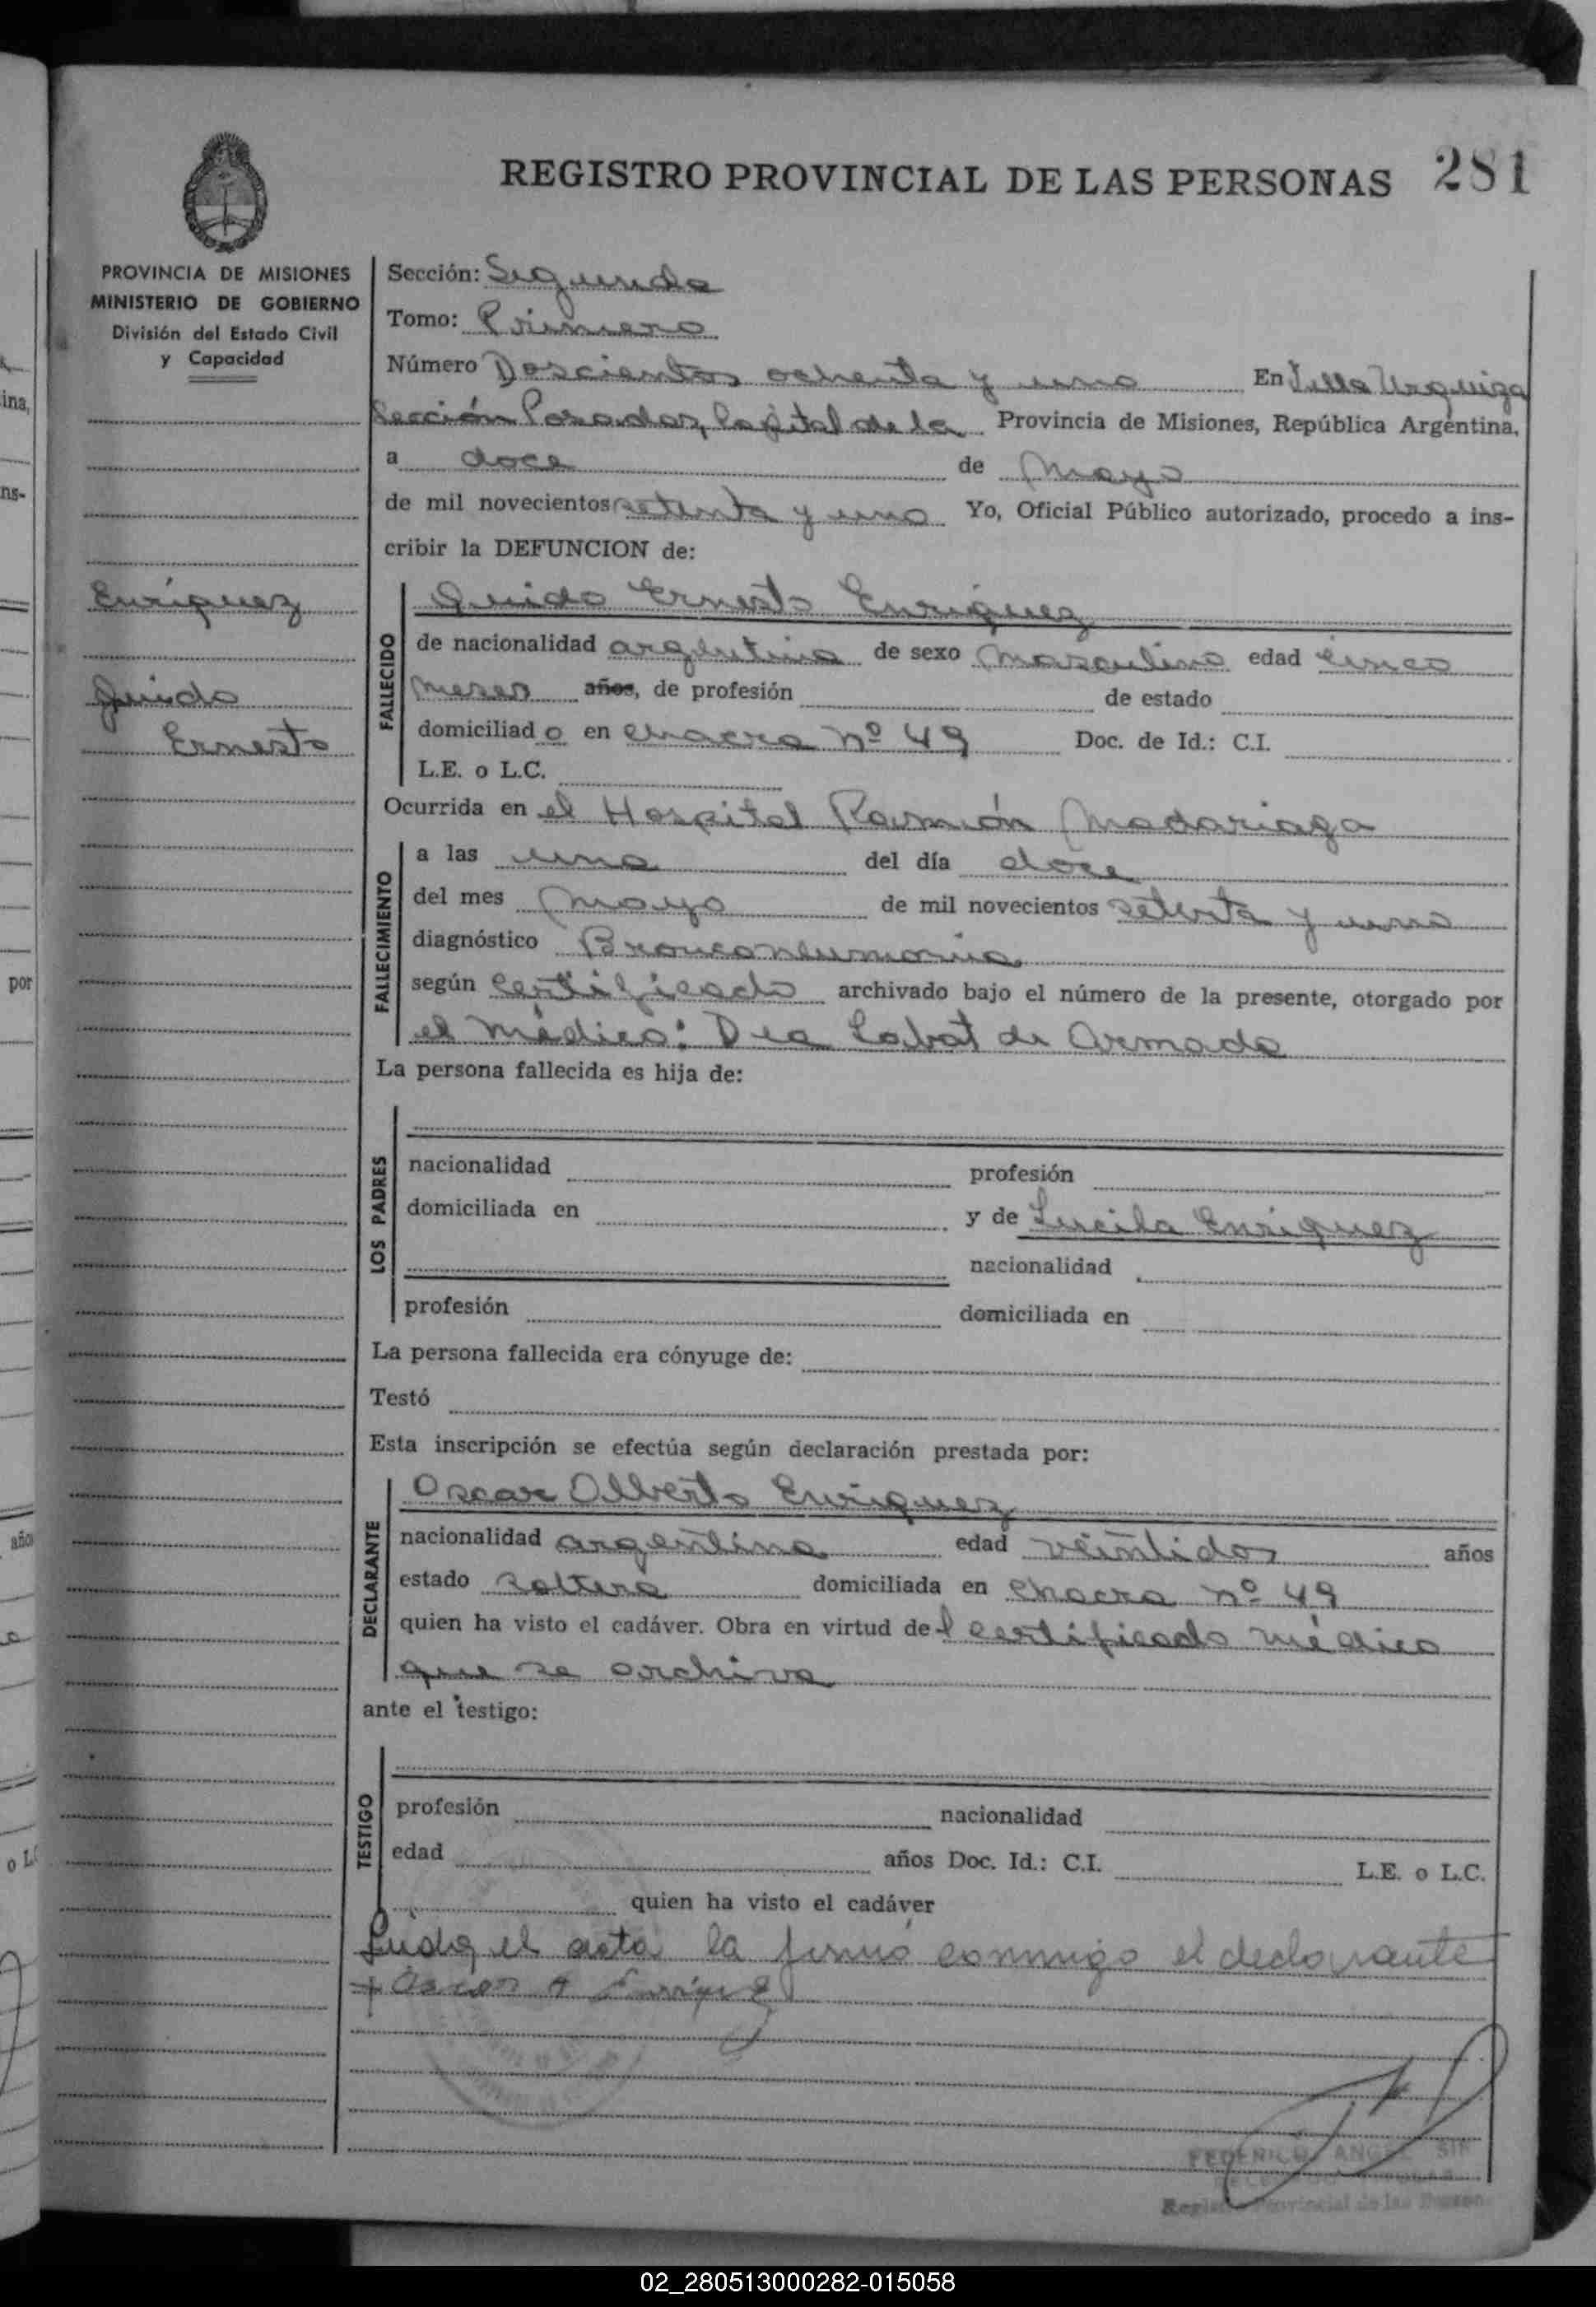 REGISTRO PROVINCIAL DE LAS PERSONAS 281
PROVINCIA DE MISIONES
MINISTERIO DE GOBIERNO
División del Estado Civil
y Capacidad
Enríquez
Guido
Ernesto
Sección: Segunda
Tomo: Primero
Número Doscientos ochenta y uno En Villa Urquiza
Sección Posadas, Capital de la Provincia de Misiones, República Argentina,
a doce de Mayo
de mil novecientos setenta y uno Yo, Oficial Público autorizado, procedo a ins-
cribir la DEFUNCION de:
FALLECIDO
Guido Ernesto Enríquez
de nacionalidad argentina de sexo masculino edad cinco
meses años, de profesión de estado
domiciliad o en chacra nº 49 Doc. de Id.: C.I.
L.E. o L.C.
Ocurrida en el Hospital Ramón Madariaga
FALLECIMIENTO
a las una del día doce
del mes Mayo de mil novecientos setenta y uno
diagnóstico Bronconeumonia
según certificado archivado bajo el número de la presente, otorgado por
el médico: Dra Labat de Armada
La persona fallecida es hija de:
LOS PADRES
nacionalidad profesión
domiciliada en y de Lucila Enriquez
nacionalidad
profesión domiciliada en
La persona fallecida era cónyuge de:
Testó
Esta inscripción se efectúa según declaración prestada por:
DECLARANTE
Oscar Alberto Enriquez
nacionalidad argentina edad veintidos años
estado soltero domiciliada en chacra nº 49
quien ha visto el cadáver. Obra en virtud del certificado médico
que se archiva
ante el testigo:
TESTIGO
profesión nacionalidad
edad años Doc. Id.: C.I. L.E. o L.C.
quien ha visto el cadáver
Leida el acta la firma conmigo el declarante
+ Oscar A Enrique
FEDERICO ANGEL
Registro Provincial de las Personas
02_280513000282-015058